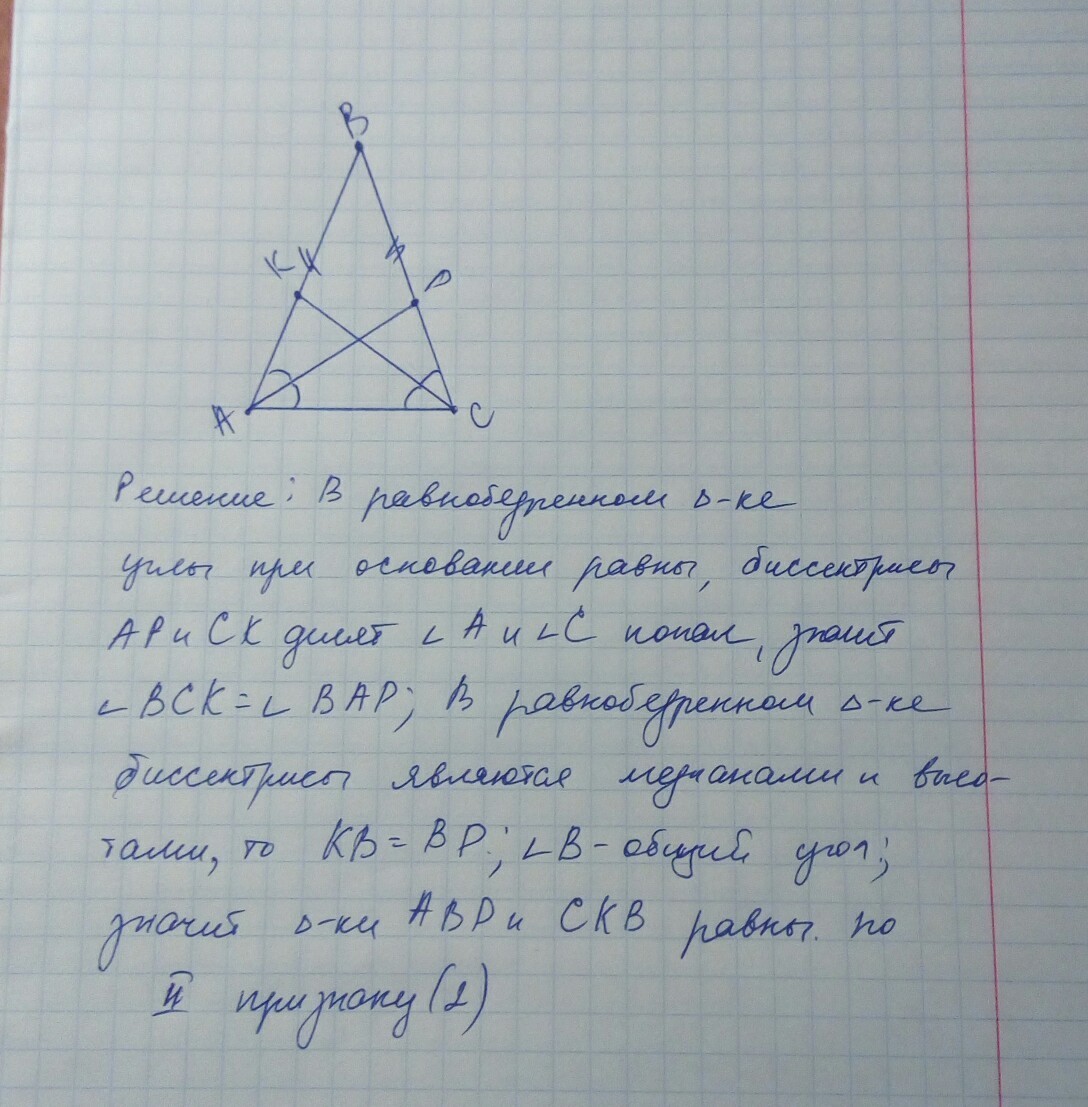 В
К
Р
А
С
Решение: В равнобедренном Δ-ке
углы при основании равны, биссектрисы
АР и СК делят ∠А и ∠С попал, значит
∠ВСК=∠ВАР; В равнобедренном Δ-ке
биссектрисы являются медианами и высо-
тами, то КВ=ВР; ∠В-общий угол;
значит Δ-ки АВР и СКВ равны. по
II признаку (2)